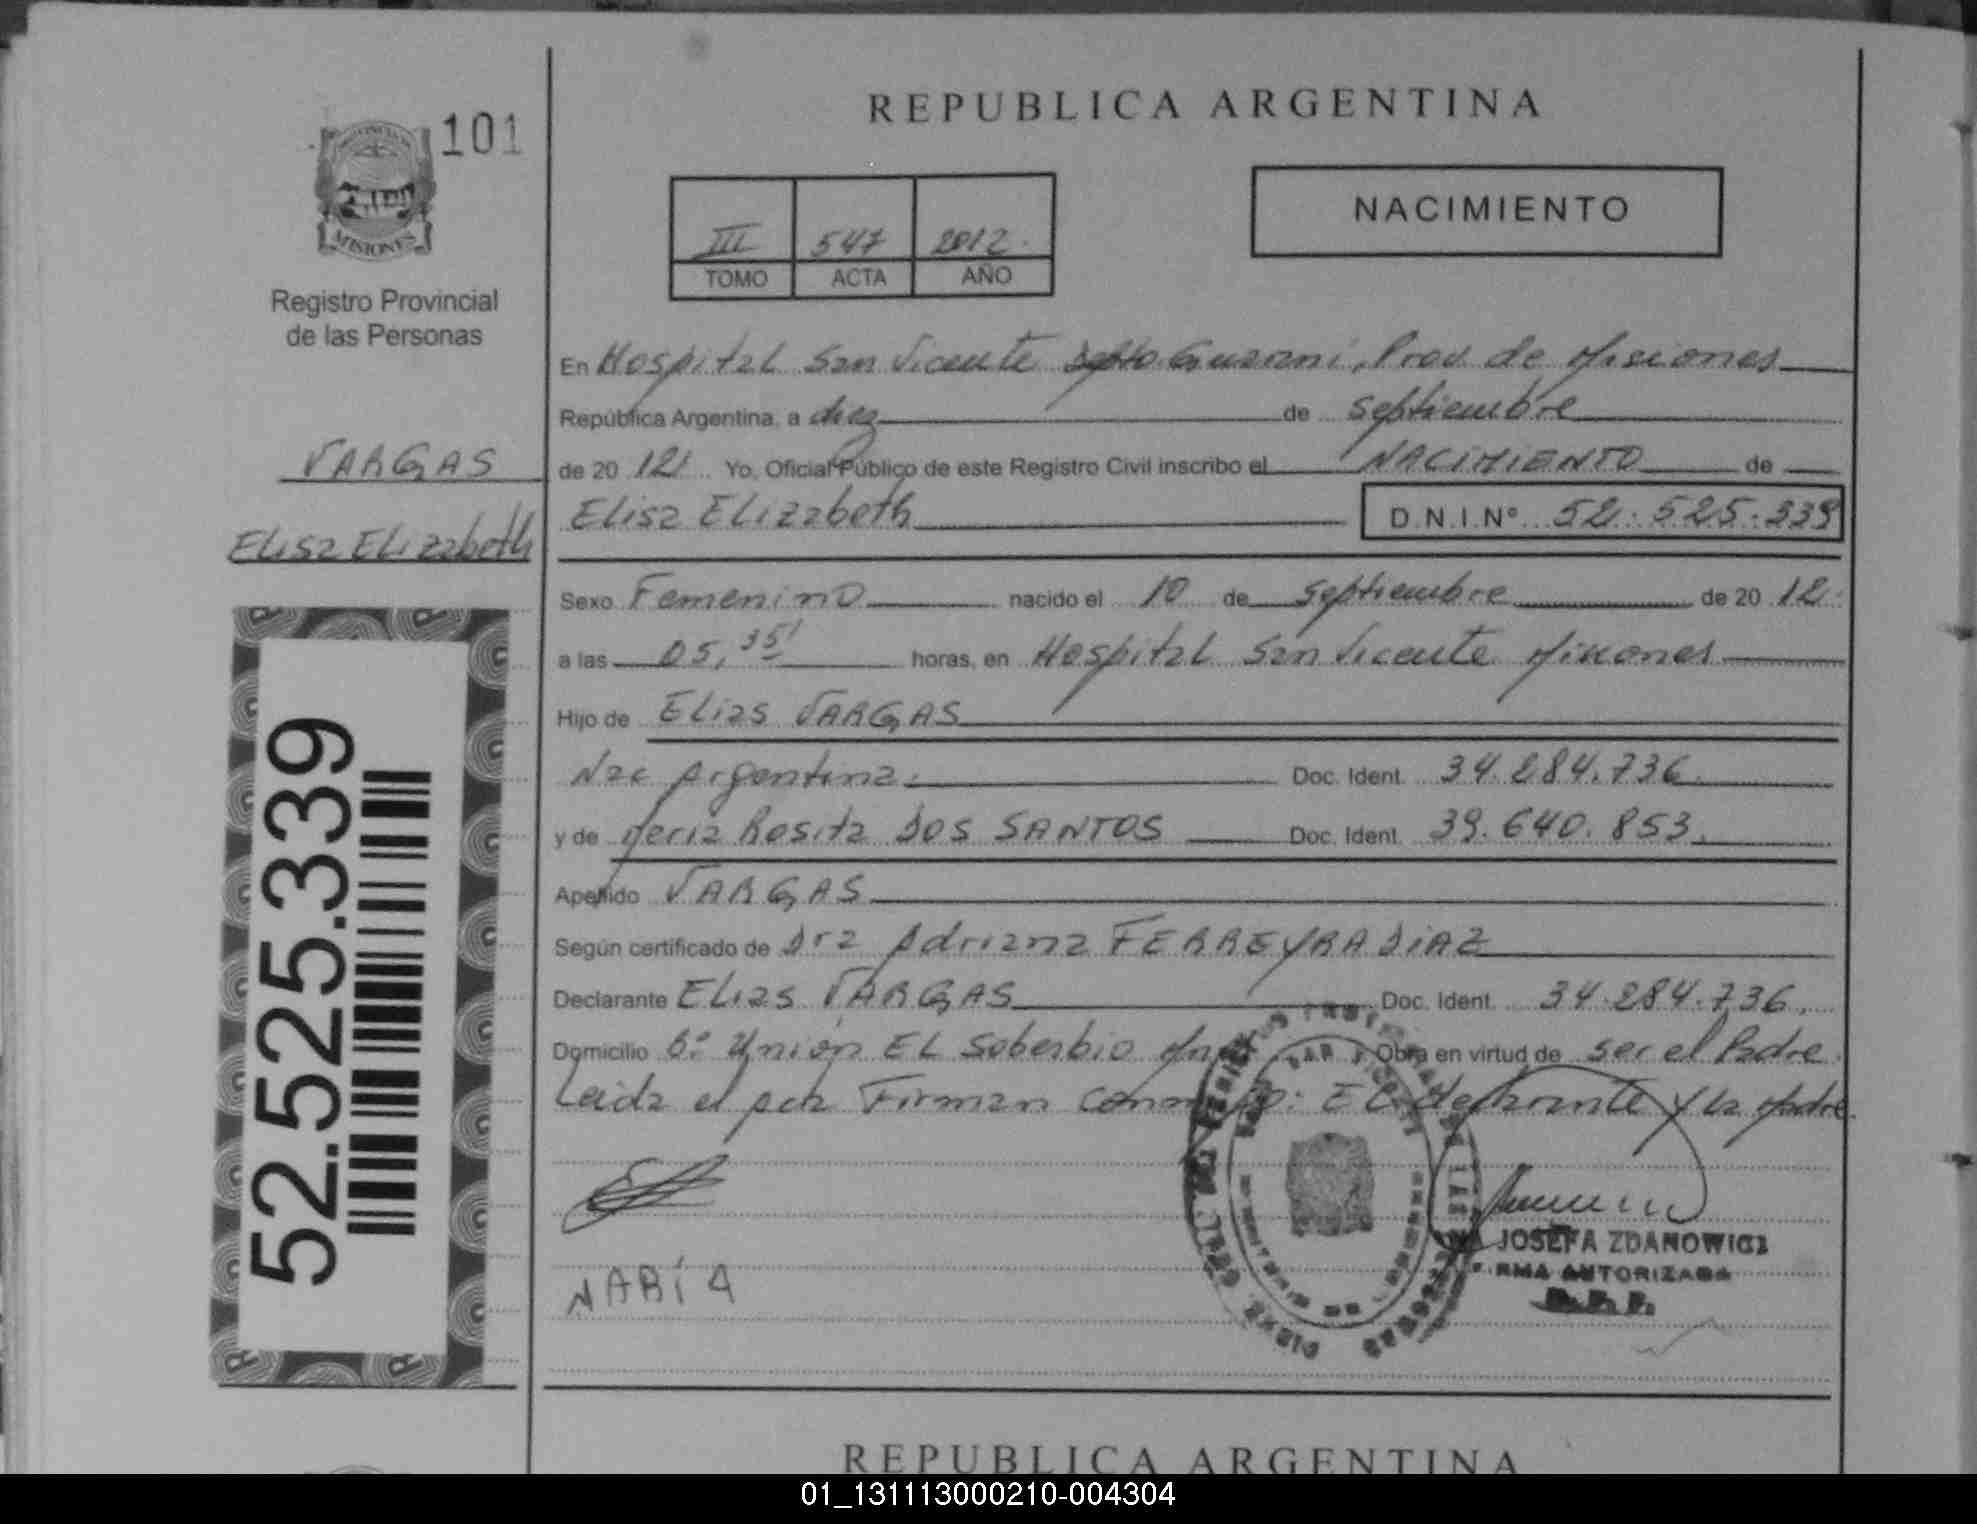 REPUBLICA ARGENTINA
101
MISIONES
Registro Provincial
de las Personas
VARGAS
Elisa Elizabeth
52.525.339
III 547 2012.
TOMO ACTA AÑO
NACIMIENTO
En Hospital San Vicente Depto Guarani, Prov. de Misiones
República Argentina, a diez de septiembre
de 2012 Yo, Oficial Público de este Registro Civil inscribo el NACIMIENTO de
Elisa Elizabeth D.N.I.N° 52.525.339
Sexo Femenino nacido el 10 de septiembre de 2012.
a las 05,35' horas, en Hospital San Vicente Misiones
Hijo de Elias VARGAS
Nac Argentina. Doc. Ident. 34.284.736.
y de Maria Rosita DOS SANTOS Doc. Ident. 39.640.853.
Apellido VARGAS
Según certificado de Dra Adriana FERREYRA DIAZ
Declarante Elias VARGAS Doc. Ident. 34.284.736.
Domicilio B° Unión El Soberbio Obra en virtud de ser el Padre
Leida el acta Firman conmigo: El declarante y la Madre.
MARÍA
JOSEFA ZDANOWICZ
AUTORIZADA
REPUBLICA ARGENTINA
01_131113000210-004304